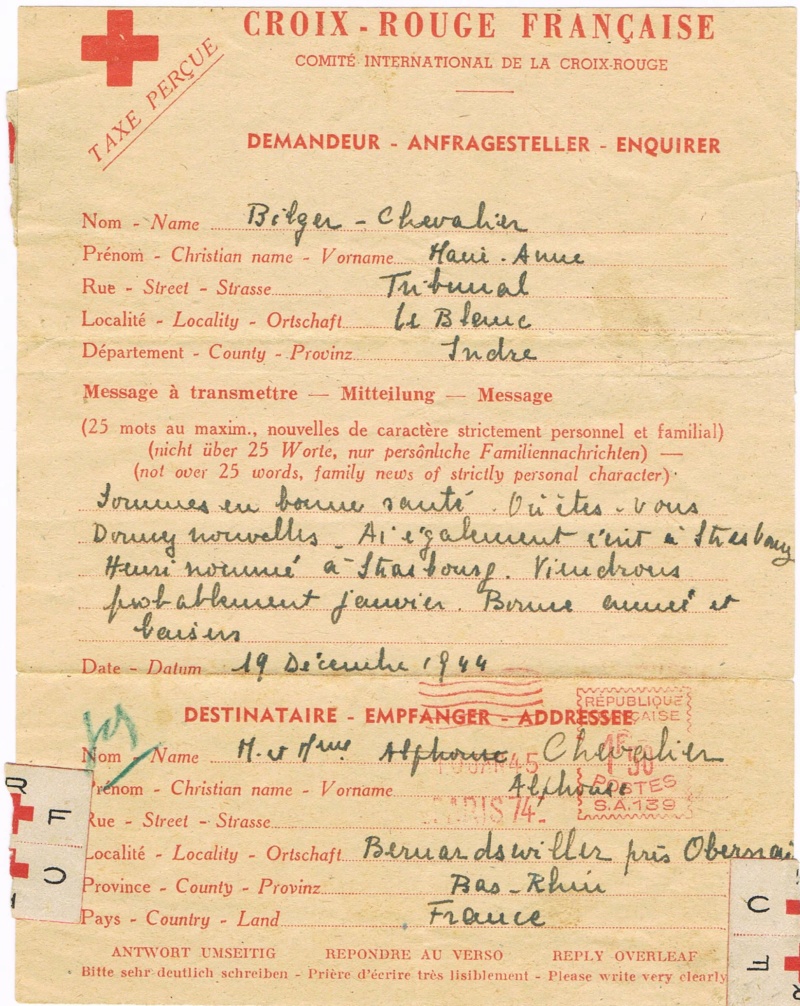 CROIX-ROUGE FRANÇAISE
COMITÉ INTERNATIONAL DE LA CROIX-ROUGE
TAXE PERÇUE
DEMANDEUR - ANFRAGESTELLER - ENQUIRER
Nom - Name Bilger - Chevalier
Prénom - Christian name - Vorname Marie-Anne
Rue - Street - Strasse Tribunal
Localité - Locality - Ortschaft Le Blanc
Département - County - Provinz Indre
Message à transmettre — Mitteilung — Message
(25 mots au maxim., nouvelles de caractère strictement personnel et familial)
(nicht über 25 Worte, nur persônliche Familiennachrichten) —
(not over 25 words, family news of strictly personal character)
Sommes en bonne santé. Où êtes-vous
Donnez nouvelles - Ai également écrit à Strasbourg
Henri nommé à Strasbourg. Viendrons
probablement janvier. Bonne année et
baisers
Date - Datum 19 Décembre 1944
DESTINATAIRE - EMPFANGER - ADDRESSEE
RÉPUBLIQUE
FRANÇAISE
Nom - Name M. et Mme Alphonse Chevalier
JAN 45
POSTES
Prénom - Christian name - Vorname Alphonse
S.A.139
PARIS 74
Rue - Street - Strasse
Localité - Locality - Ortschaft Bernardswiller près Obernai
Province - County - Provinz Bas-Rhin
Pays - Country - Land France
R F
C
C
F R
ANTWORT UMSEITIG REPONDRE AU VERSO REPLY OVERLEAF
Bitte sehr deutlich schreiben - Prière d'écrire très lisiblement - Please write very clearly